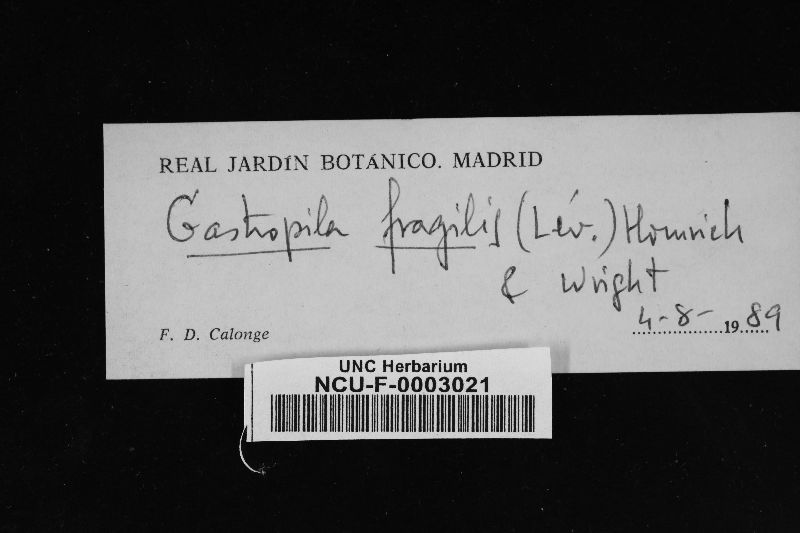 REAL JARDÍN BOTÁNICO. MADRID
Gastropila fragilis (Lév.) Homrich
& Wright
F. D. Calonge
4-8-1989
UNC Herbarium
NCU-F-0003021